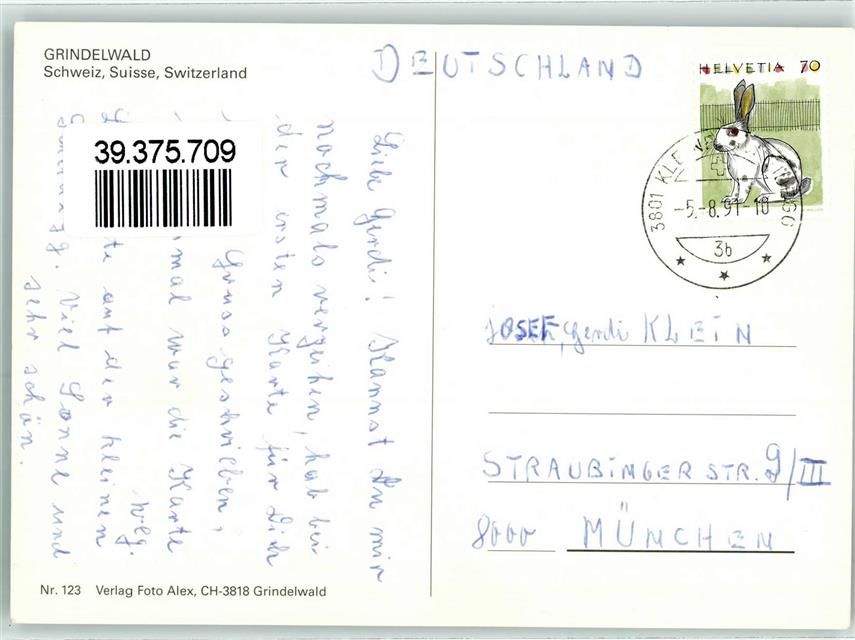 GRINDELWALD
Schweiz, Suisse, Switzerland
DEUTSCHLAND
HELVETIA 70
39.375.709
3801 KLEINE
-5.-8.91-18
3b
Liebe Gerdi! Kannst Du mir
nochmals verzeihen, hab bei
der ersten Karte für Dich
Gruss geschrieben,
mal war die Karte
weg.
auf der kleinen
Viel Sonne und
sehr schön.
JOSEF, Gerdi KLEIN
STRAUBINGER STR. 9/III
8000 MÜNCHEN
Nr. 123 Verlag Foto Alex, CH-3818 Grindelwald